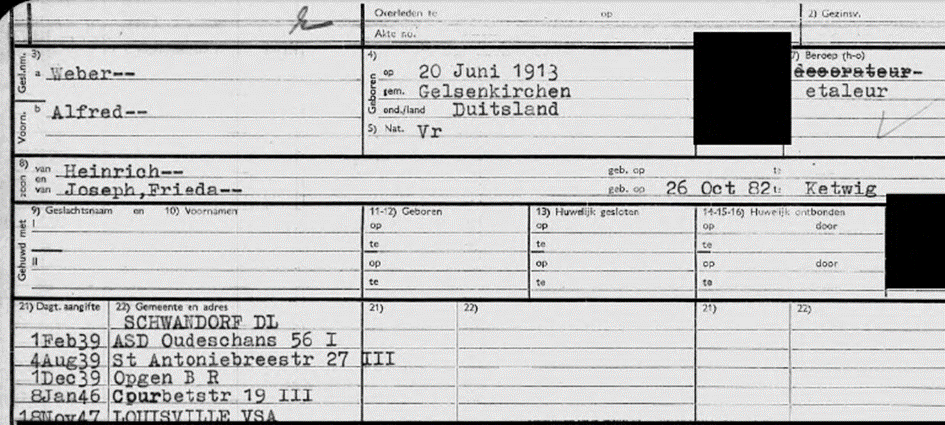 Overleden te op 2) Gezinsv.
Akte no.
Gesl.nm. 3) a Weber--
Voorn. b Alfred--
4) Geboren op 20 Juni 1913
gem. Gelsenkirchen
ond./land Duitsland
5) Nat. Vr
7) Beroep (h-o)
decorateur-
etaleur
8) zoon van Heinrich-- geb. op t:
en van Joseph,Frieda-- geb. op 26 Oct 82 t: Ketwig
Gehuwd met 9) Geslachtsnaam en 10) Voornamen 11-12) Geboren 13) Huwelijk gesloten 14-15-16) Huwelijk ontbonden
I op op op door
te te te
II op op op door
te te te
21) Dagt. aangifte 22) Gemeente en adres 21) 22) 21) 22)
SCHWANDORF DL
1Feb39 ASD Oudeschans 56 I
4Aug39 St Antoniebreestr 27 III
1Dec39 Opgen B R
8Jan46 Courbetstr 19 III
18Nov47 LOUISVILLE VSA